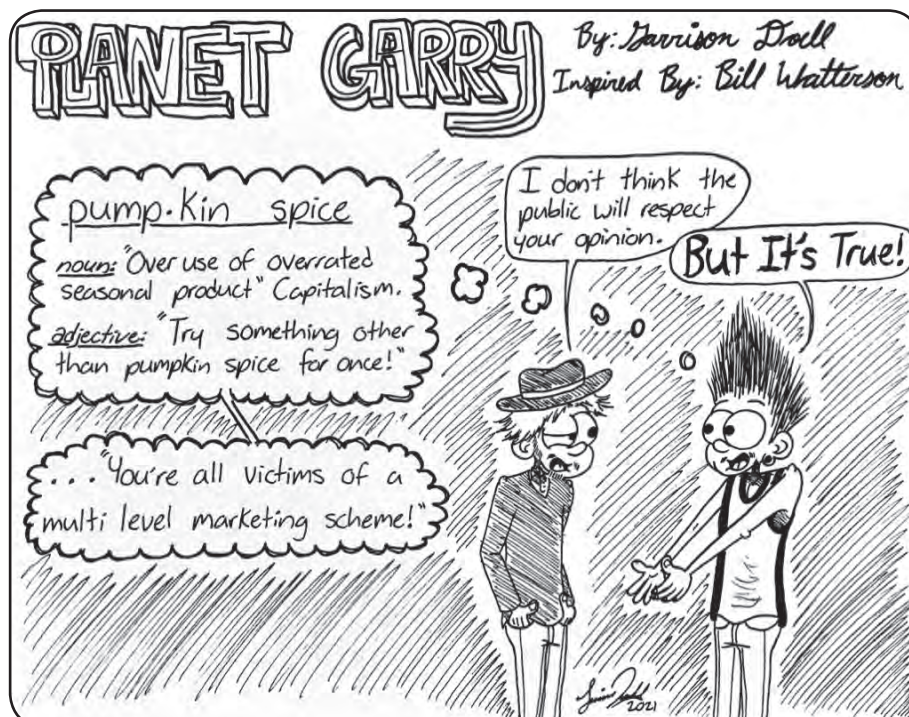 PLANET GARRY
By: Garrison Droll
Inspired By: Bill Whatterson
pump·kin spice
noun: "Over use of overrated
seasonal product" Capitalism.
adjective: "Try something other
than pumpkin spice for once!"
... "You're all victims of a
multi level marketing scheme!"
I don't think the
public will respect
your opinion.
But It's True!
2021